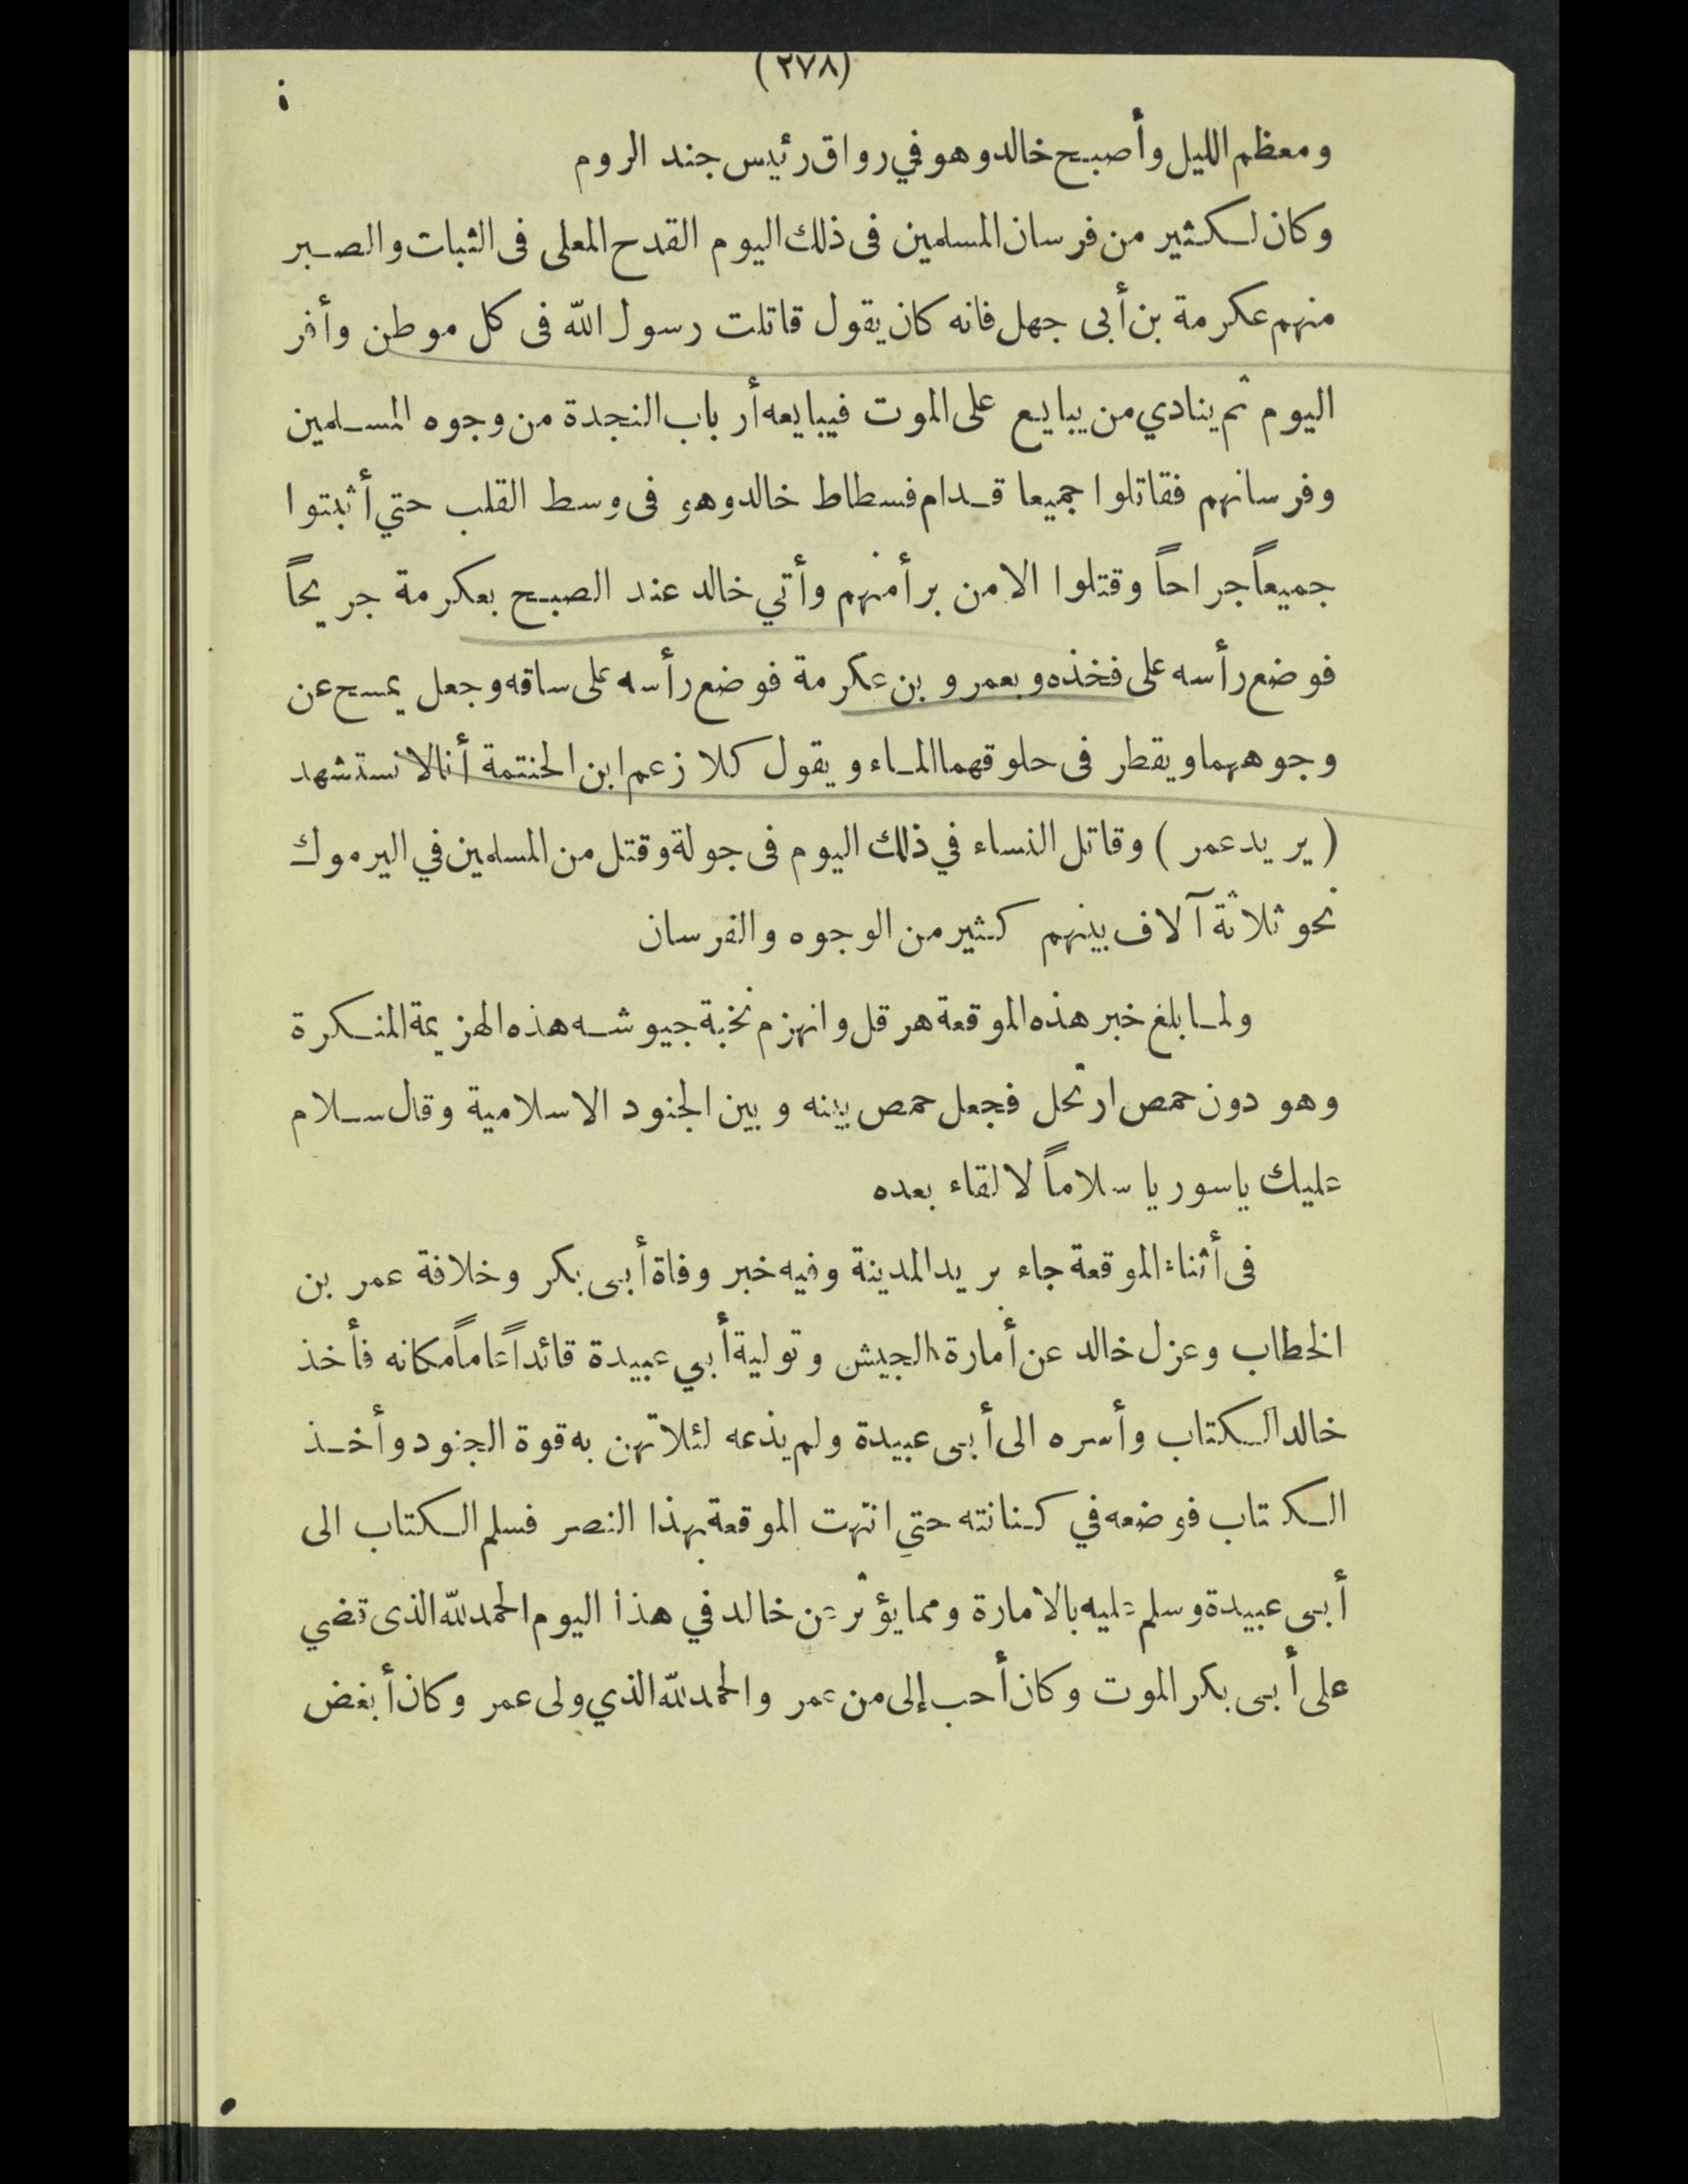 (٢٧٨)
ومعظم الليل وأصبح خالد وهو في رواق رئيس جند الروم
وكان لكثير من فرسان المسلمين فى ذلك اليوم القدح المعلى فى الثبات والصبر
منهم عكرمة بن أبى جهل فانه كان يقول قاتلت رسول الله فى كل موطن وأفر
اليوم ثم ينادي من يبايع على الموت فيبايعه أرباب النجدة من وجوه المسلمين
وفرسانهم فقاتلوا جميعا قدام فسطاط خالد وهو فى وسط القلب حتي أثبتوا
جميعاً جراحاً وقتلوا الا من برأ منهم وأتي خالد عند الصبح بعكرمة جريحاً
فوضع رأسه على فخذه وبعمرو بن عكرمة فوضع رأسه على ساقه وجعل يمسح عن
وجوههما ويقطر فى حلوقهما الماء ويقول كلا زعم ابن الحنتمة أنا لا نستشهد
(يريد عمر) وقاتل النساء في ذلك اليوم فى جولة وقتل من المسلمين في اليرموك
نحو ثلاثة آلاف بينهم كثير من الوجوه والفرسان
ولما بلغ خبر هذه الموقعة هرقل وانهزم نخبة جيوشه هذه الهزيمة المنكرة
وهو دون حمص ارتحل فجعل حمص بينه وبين الجنود الاسلامية وقال سلام
عليك ياسوريا سلاماً لا لقاء بعده
فى أثناء الموقعة جاء بريد المدينة وفيه خبر وفاة أبى بكر وخلافة عمر بن
الخطاب وعزل خالد عن أمارة الجيش وتولية أبي عبيدة قائداً عاماً مكانه فأخذ
خالد الكتاب وأسره الى أبى عبيدة ولم يذعه لئلا تهن به قوة الجنود وأخذ
الكتاب فوضعه في كنانته حتي انتهت الموقعة بهذا النصر فسلم الكتاب الى
أبى عبيدة وسلم عليه بالامارة ومما يؤثر عن خالد في هذا اليوم الحمد لله الذى قضي
على أبى بكر الموت وكان أحب إلى من عمر والحمد لله الذي ولى عمر وكان أبغض